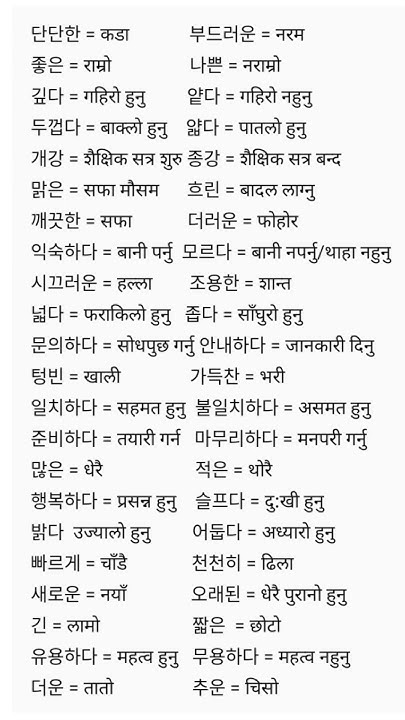 단단한 = कडा 부드러운 = नरम
좋은 = राम्रो 나쁜 = नराम्रो
깊다 = गहिरो हुनु 얕다 = गहिरो नहुनु
두껍다 = बाक्लो हुनु 얇다 = पातलो हुनु
개강 = शैक्षिक सत्र शुरु 종강 = शैक्षिक सत्र बन्द
맑은 = सफा मौसम 흐린 = बादल लाग्नु
깨끗한 = सफा 더러운 = फोहोर
익숙하다 = बानी पर्नु 모르다 = बानी नपर्नु/थाहा नहुनु
시끄러운 = हल्ला 조용한 = शान्त
넓다 = फराकिलो हुनु 좁다 = साँघुरो हुनु
문의하다 = सोधपुछ गर्नु 안내하다 = जानकारी दिनु
텅빈 = खाली 가득찬 = भरी
일치하다 = सहमत हुनु 불일치하다 = असमत हुनु
준비하다 = तयारी गर्न 마무리하다 = मनपरी गर्नु
많은 = धेरै 적은 = थोरै
행복하다 = प्रसन्न हुनु 슬프다 = दु:खी हुनु
밝다 उज्यालो हुनु 어둡다 = अध्यारो हुनु
빠르게 = चाँडै 천천히 = ढिला
새로운 = नयाँ 오래된 = धेरै पुरानो हुनु
긴 = लामो 짧은 = छोटो
유용하다 = महत्व हुनु 무용하다 = महत्व नहुनु
더운 = तातो 추운 = चिसो